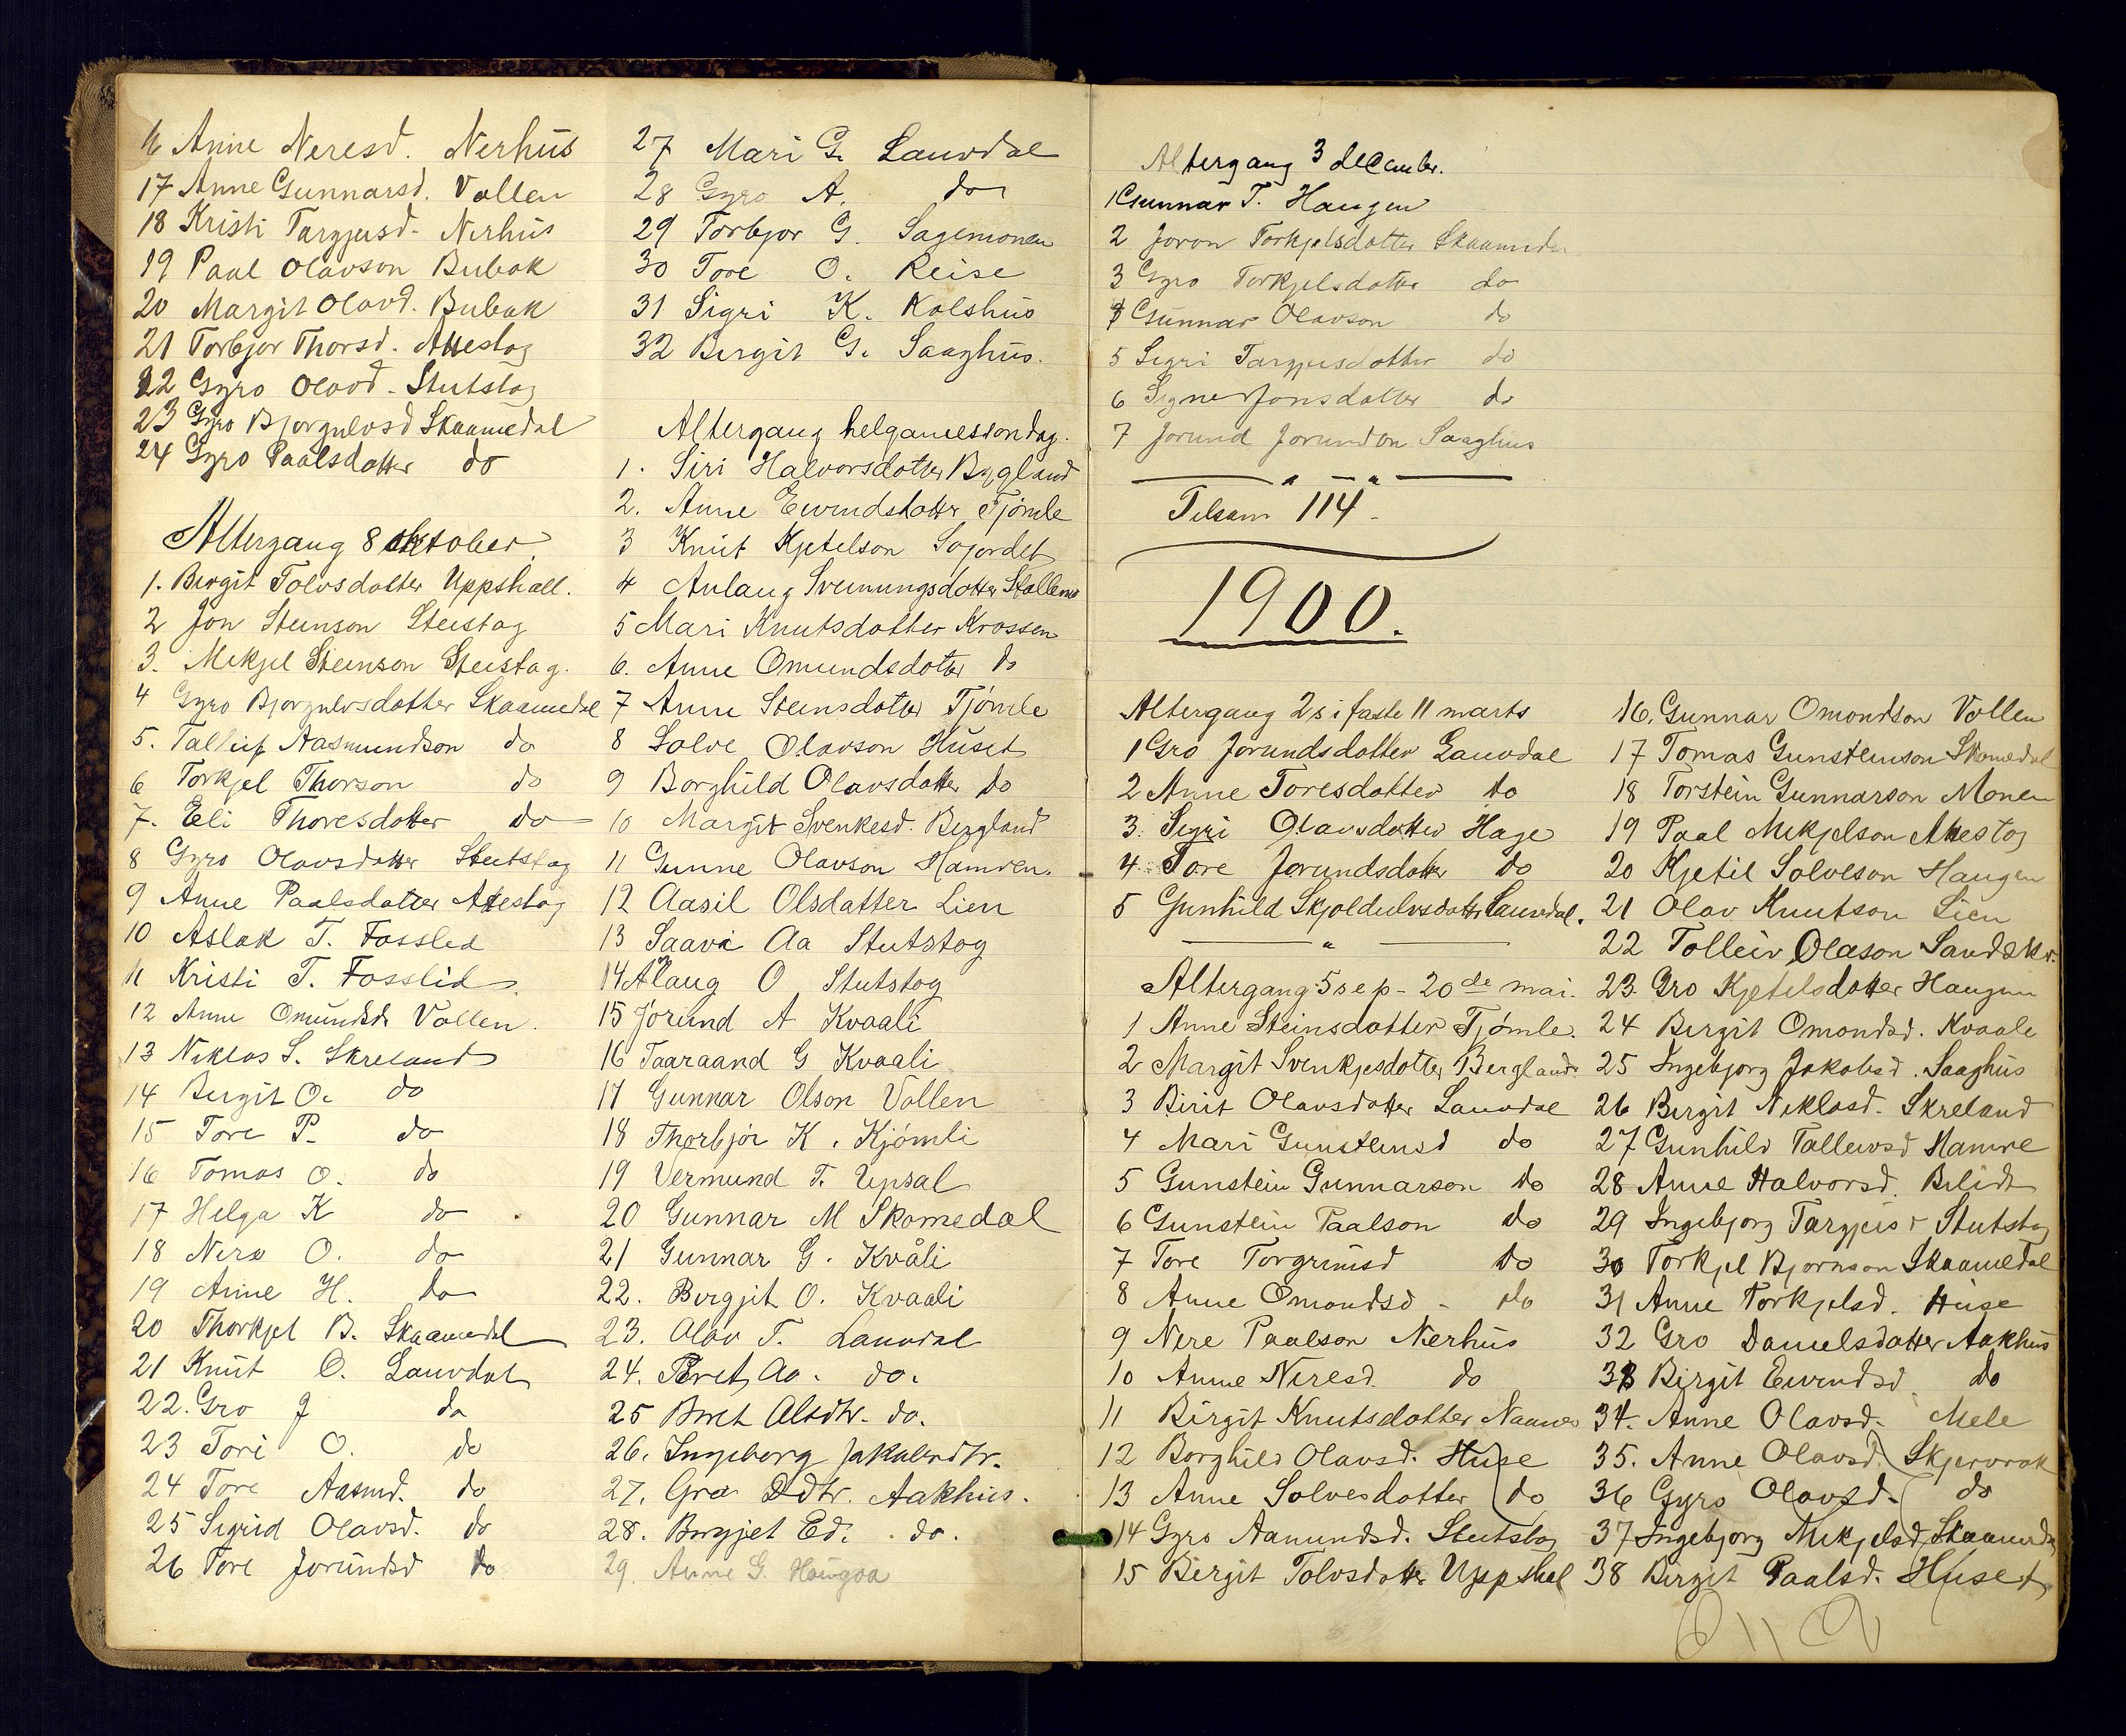 16 Anne Neresd. Nerhus
17 Anne Gunnarsd. Vollen
18 Kristi Targjusd. Nerhus
19 Paal Olavson Bubak
20 Margit Olavd. Bubak
21 Torbjor Thorsd. Attestog
22 Gyro Olavd. Stutstog
23 Gyro Bjorgulvsd Skaamedal
24 Gyro Paalsdotter do
Altergang 8 oktober.
1. Birgit Tolvsdotter Uppshall.
2 Jon Steinson Steistog
3. Mekjel Steinson Steistog.
4 Gyro Bjorgulvsdotter Skaamedal
5. Talleif Aasmundson do
6 Torkjel Thorson do
7. Eli Thoresdotter do
8 Gyro Olavsdotter Stutstog
9 Anne Paalsdotter Attestog
10 Aslak T. Fosslid
11 Kristi T. Fosslid
12 Anne Omundsd. Vollen.
13 Niklos S. Skreland
14 Bergit O. do
15 Tore P. do
16 Tomas O. do
17 Helga K do
18 Nero O. do
19 Anne H. do
20 Thorkjel B. Skaamedal
21 Knut O. Lauvdal
22. Gro J do
23 Tori O. do
24 Tore Aasmd. do
25 Sigrid Olavsd. do
26 Tore Jorundsd do
27 Mari G. Lauvdal
28 Gyro A. do
29 Torbjor G. Sagemonen
30 Tore O. Reise
31 Sigri K. Kolshus
32 Birgit G. Saaghus.
Altergang helgamessondag.
1. Siri Halvorsdotter Bygland
2. Anne Eivindsdotter Tjómle
3 Knut Kjetelson Sojordet
4 Aulaug Sveinungsdotter Stallemo
5 Mari Knutsdotter Krossen
6. Anne Omundsdotter do
7 Anne Steinsdotter Tjómle
8 Solve Olavson Huset
9 Borghild Olavsdotter do
10 Margit Svenkesd. Bergland
11 Gunne Olavson Hamren.
12 Aasil Olsdatter Lien
13 Saavi Aa Stutstog
14 Alaug O Stutstog
15 Jorund A Kvaali
16 Taaraand G Kvaali
17 Gunnar Olson Vollen
18 Thorbjór K. Kjómli
19 Vermund T. Upsal
20 Gunnar M Skomedal
21 Gunnar G. Kvåli
22. Birgjit O. Kvaali
23. Olav T. Lauvdal
24. Beret, Aa. do.
25 Beret Olsdtr. do.
26. Ingeborg Jakobsdtr.
27. Gro Ddtr. Aakhus.
28. Birgjet Ed. do.
29. Anne G. Haugaa
Altergang 3 december.
1 Gunnar T. Haugen
2 Joron Torkjelsdotter Skaamedal
3 Gyro Torkjelsdotter do
4 Gunnar Olavson do
5 Sigri Targjusdotter do
6 Signe Jonsdotter do
7 Jorund Jorundson Saaghus
Tilsam 114.
1900.
Altergang 2 s i faste 11 marts
1 Gro Jorundsdotter Lauvdal
2 Anne Toresdotter do
3. Sigri Olavsdotter Hage
4. Tore Jorundsdotter do
5 Gunhild Skjoldulvsdotter Lauvdal.
Altergang 5 s e p - 20de mai.
1 Anne Steinsdotter Tjómle.
2 Margit Svenkjesdotter Bergland.
3 Birit Olavsdotter Lauvdal
4 Mari Gunsteinsd do
5 Gunstein Gunnarson do
6 Gunstein Paalson do
7 Tore Torgrimsd do
8 Anne Omondsd - do
9 Nere Paalson Nerhus
10 Anne Neresd. do
11 Birgit Knutsdotter Naanes
12 Borghild Olavsd. Huse
13 Anne Solvesdotter do
14 Gyro Aamundsd. Stutstog
15 Birgit Tolvsdotter Uppshal
16. Gunnar Omondson Vollen
17 Tomas Gunsteinson Skomedal
18 Torstein Gunnarson Monen
19 Paal Mekjelson Attestog
20 Kjetil Solveson Haugen
21 Olav Knutson Lien
22 Tolleiv Olason Sandskr.
23. Gro Kjetelsdotter Haugen
24 Birgit Omondsd. Kvaale
25 Ingebjorg Jakobsd. Saaghus
26 Birgit Niklosd. Skreland
27 Gunhild Talleivsd Hamre
28 Anne Halvorsd. Belidt
29 Ingebjorg Targjeisd Stutstog
30 Torkjel Bjornson Skaamedal
31 Anne Torkjelsd. Huse
32 Gro Danielsdotter Aakhus
33 Birgit Eivindsd do
34. Anne Olavsd. Mele
35. Anne Olavsd. Skjervrak
36 Gyro Olavsd. do
37 Ingebjorg Mekjelsd. Skaamedal
38 Birgit Paalsd. Huset